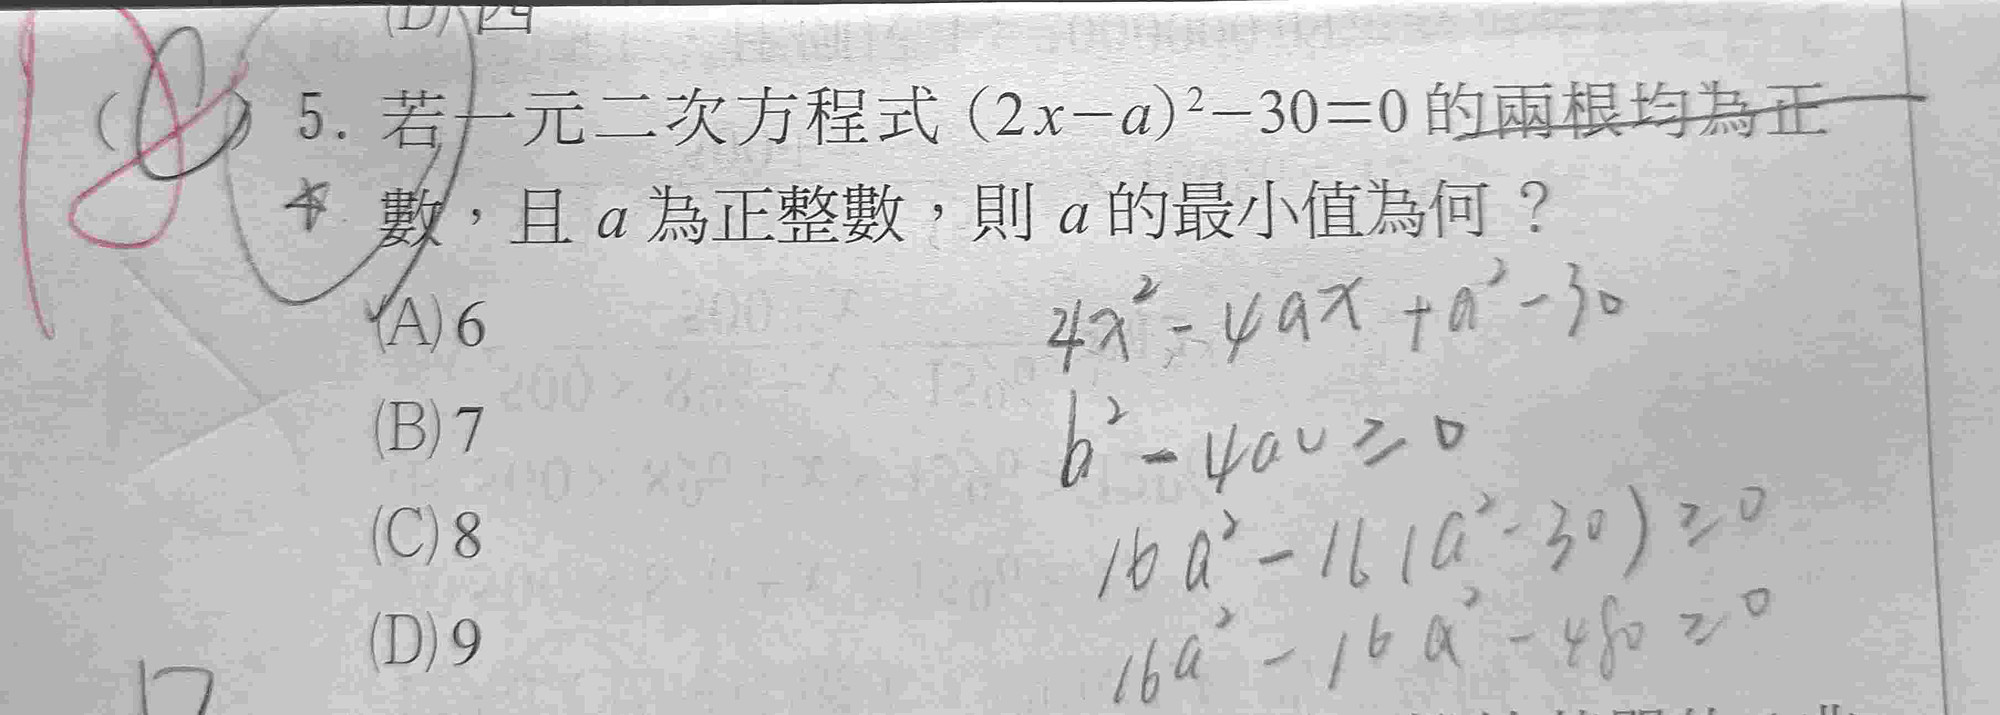 (D) 四
5. 若一元二次方程式 (2x−a)²−30=0 的兩根均為正
數，且 a 為正整數，則 a 的最小值為何？
(A) 6
4x² - 4ax + a² - 30
(B) 7
b² - 4ac ≥ 0
(C) 8
16a² - 16(a² - 30) ≥ 0
(D) 9
16a² - 16a² - 480 ≥ 0